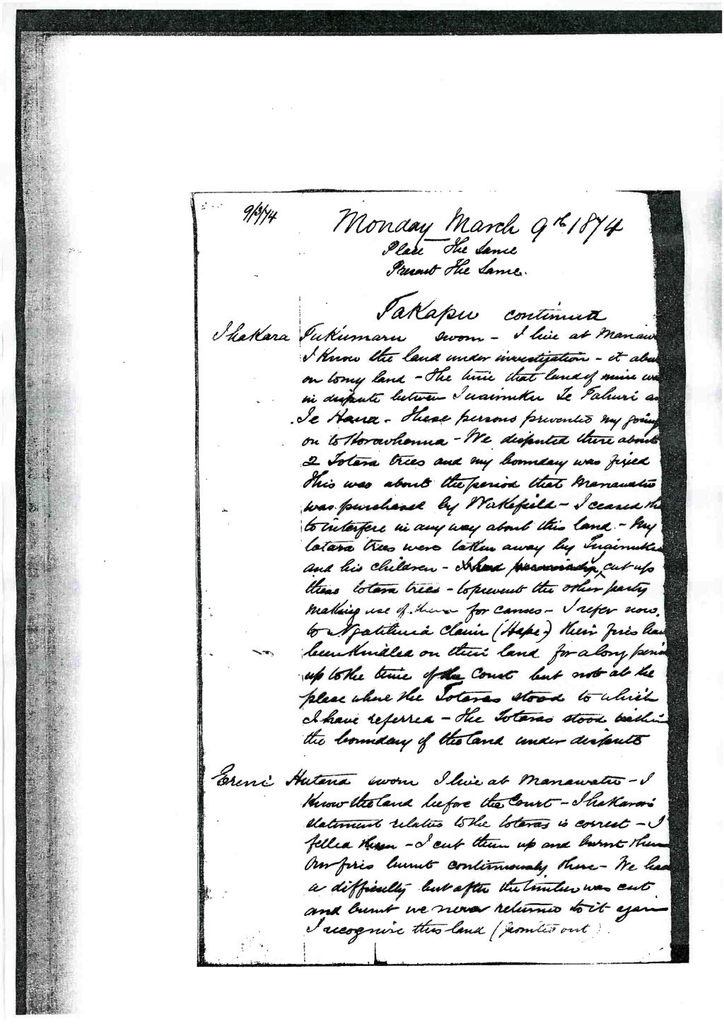 9/3/74
Monday March 9th 1874
Place The Same
Present The Same.
Takapu continued
Ihakara Tukumaru sworn - I live at Manaw
I Know the land under investigation - it abu
on to my land - The time that land of mine wa
in dispute between Te Tahuri a
These persons prevented my going
on to Horowhenua - We disputed there about
2 Totara trees and my boundary was fixed
This was about the period that Manawatu
was purchased by Wakefield - I ceased the
to interfere in any way about this land - My
totara trees were taken away by
and his children - I had cut up
these totara trees - to prevent the other party
making use of them for canoes - I refer now
to claim (Hape) their fires have
been Kindled on their land for a long perio
up to the time of the Court but not at the
place where the Totaras stood to which
I have referred - The Totaras stood within
the boundary of the land under dispute
Ereni Hutana sworn I live at Manawatu - I
Know the land before the Court - Ihakara's
statement relative to the totaras is correct - I
felled them - I cut them up and burnt them
Our fires burnt continuously there - We had
a difficulty but after the timber was cut
and burnt we never returned to it again
I recognise this land (pointed out)